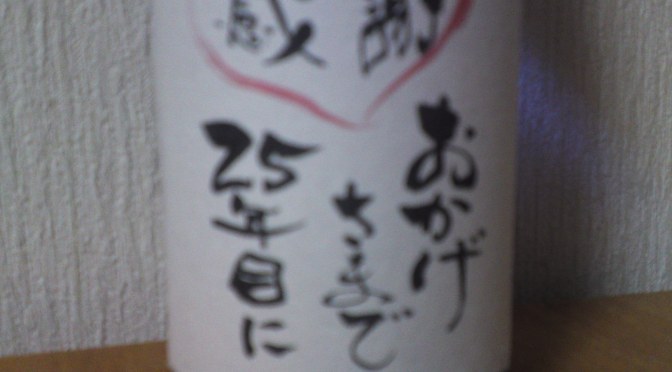 感謝
おかげ
さまで
25年目に